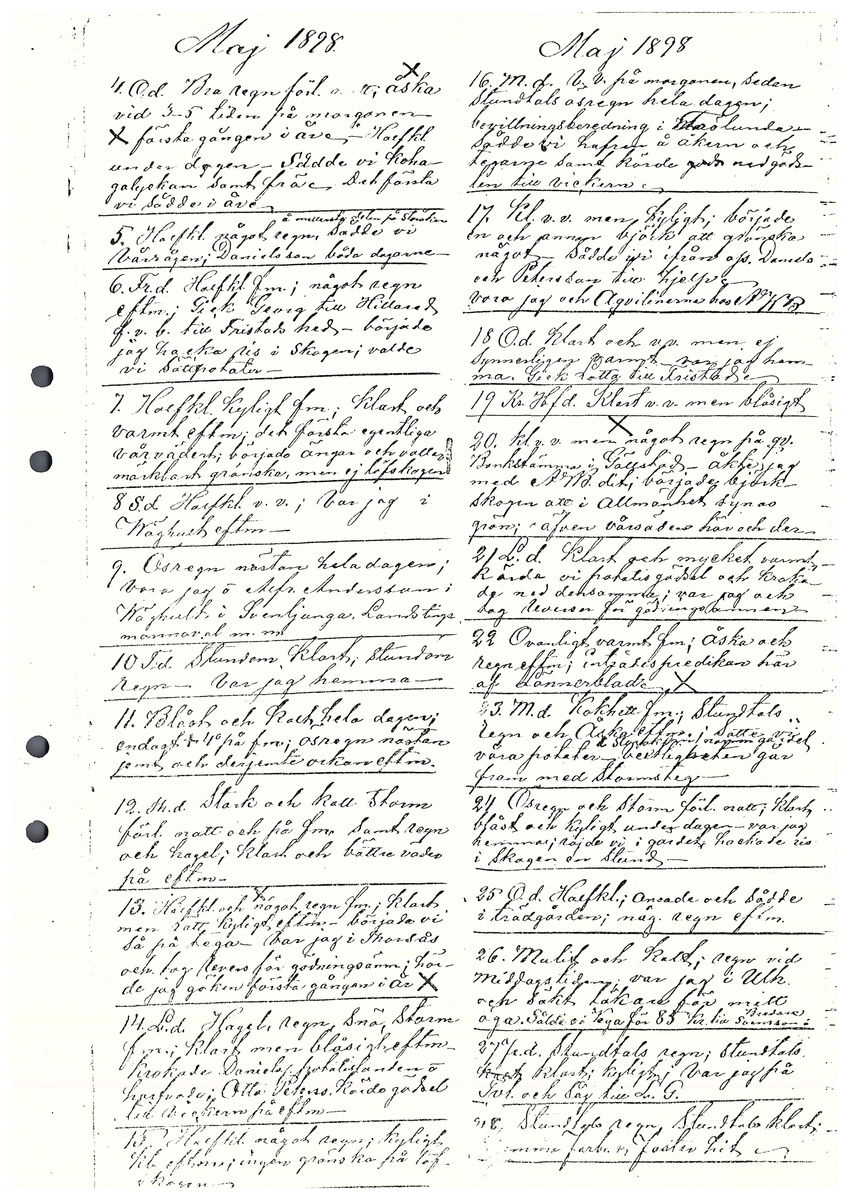 Maj 1898.
4. O.d. Bra regn förl. natt; åska
vid 3-5 tiden på morgonen
första gången i åre, - Halfkl
under dagen - Sådde vi
samt fräe Det första
vi sådde i åre
5. Halfkl något regn, Sådde vi
vårrågen; Danielsson båda dagarne
6. Fr.d. Halfkl fm.; något regn
eftm.; Gick Georg till Hillared
f. v. b. till Fristads hed - började
jag hacka ris i Skogen; valde
vi Sättpotater -
7. Halfkl. kyligt fm.; klart och
varmt eftm; det första egentliga
vårvädert; började ängar och
märkbart grönska, men ej löfskogen
8 S.d. Halfkl v. v.; var jag i
Wäghult eftm -
9. Ösregn nästan hela dagen;
vora jag o Alfr. Andersson i
Wäghult i Svenljunga Landstings
mannaval m. m
10 T.d. Stundom klart; stundom
regn - var jag hemma -
11. Blåst och kallt hela dagen;
endast + 4° på fm.; ösregn nästan
jemt och derjemte orkan eftm.
12. Stark och kall Storm
förl. natt och på fm. samt regn
och hagel; klart och bättre väder
på eftm -
13. Halfkl och något regn fm.; klart
men kyligt eftm - började vi
så på tega - var jag i
och tog revers för gödningsämn; hör-
de jag göken första gången i år
14. L.d. Hagel, regn, Snö, Storm
f.m.; klart men blåsigt eftm -
krokade Daniels. potatislanden o
harfvade; Otto Peters. körde gödsel
till vickern på eftm -
15. Halfkl något regn; kyligt
eftm; ingen grönska på löf-
skogen -
Maj 1898
16. M.d. V. v. på morgonen, sedan
Stundtals ösregn hela dagen;
bevillningsberedning i
Sådde vi hafre å åkern och
tegarne samt körde ned göds-
len till vickern
17. Kl. v.v. men kyligt; började
en och annan björk att grönska
något - Sådde vi ifrån oss. Daniels
och Petersson till hjelp
vora jag och Aqvilinerna hos
18 O.d. klart och v.v. men ej
synnerligen varmt - var jag hem-
ma. Gick Lotta till Fristad
19 Kr. Hfd. Klart v. v. men blåsigt
20. kl v. v. men något regn på qv.
Bankstämma i Gällstad - åkte jag
med dit; började björk-
skogen att i Allmänhet synas
grön; äfven vårsäden här och der -
21 L.d. Klart och mycket varmt
körde vi potatisgödsel och kroka-
de ned densamma; var jag och
tog reverser för gödningsämnen
22 Ovanligt varmt fm; åska och
regn eftm; inträdespredikan här
af Lönnerblad
23. M.d. Kokhett fm; Stundtals
regn och Åska eftm; Sätte vi
våra potater -
fram med Stormsteg -
24 Ösregn och Storm förl. natt; klart
blåst och kyligt under dagen - var jag
hemma; röjde vi i gärdet, hackade ris
i skogen en Stund -
25 O.d. Halfkl.; ansade och sådde
i trädgården; någ. regn eftm.
26. Mulit och kallt; regn vid
Middagstiden; var jag i Ulh.
och sökt läkare för mitt
öga. Sålde vi Vega för 85 kr. till Svensson i
27 fr.d. Stundtals regn; stundtals
klart; kyligt; var jag på
Tvt. och Såg till L. G.
28. Stundtals regn, Stundtals klart;